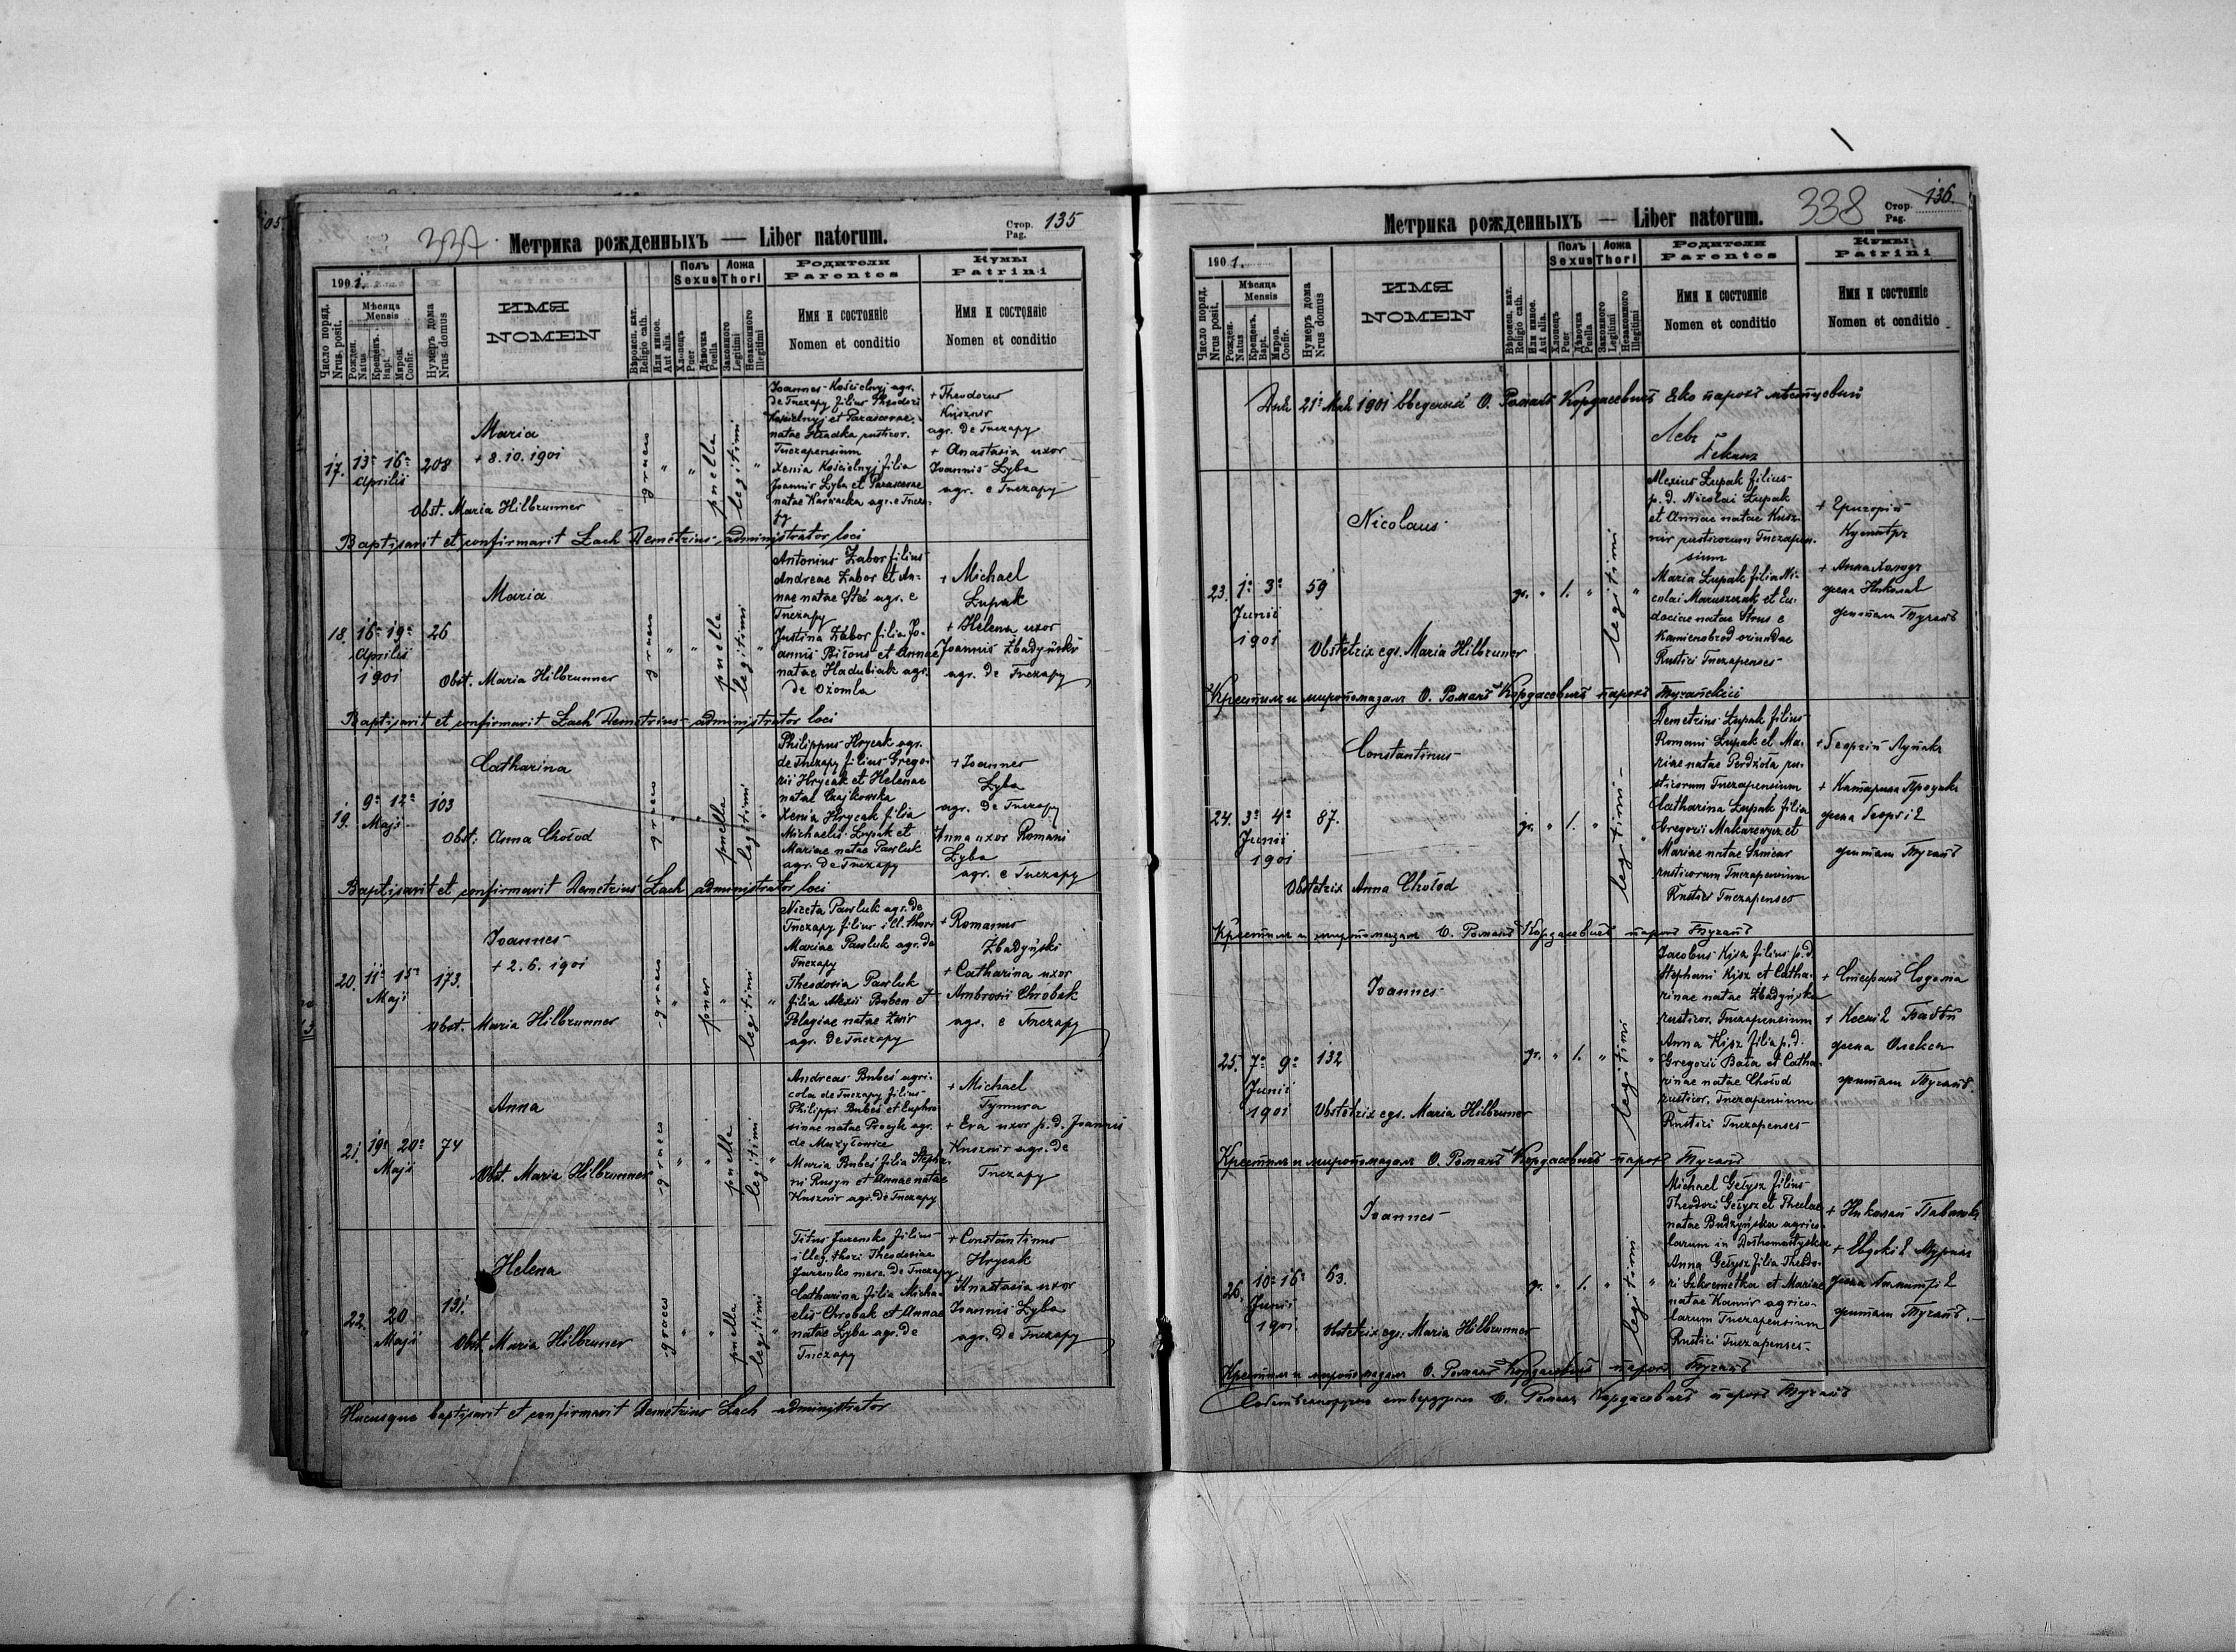 337
Метрика рожденныхъ — Liber natorum.
Стор. Pag. 135
1901.
Число поряд. Nrus. posit.
Мѣсяца Mensis
Рожден. Natus
Крещенъ. Bapt.
Мироп. Confir.
Нумеръ дома Nrus domus
ИМЯ
NOMEN
Вѣроисп. кат. Religio cath.
Или иное. Aut alia.
Полъ
Sexus
Хлопець Puer
Дѣвочка Puella
Ложа
Thori
Законного Legitimi
Незаконного Illegitimi
Родители
Parentes
Имя и состояніе
Nomen et conditio
Кумы
Patrini
Имя и состояніе
Nomen et conditio
17. 13. 16. Aprilis
208
Maria
+ 8.10.1901
Obst. Maria Hilbrunner
graeco
puella
legitimi
Joannes Kościelnyj agr.
de Tuczapy filius Theodori
Kościelnyj et Parascevae
natae Hradka rusticor.
Tuczapensium
Xenia Kościelnyj filia
Joannis Łyba et Parascevae
natae Karwacka agr. e Tucza-
py
+ Theodorus
Kusznir
agr. de Tuczapy
+ Anastasia uxor
Joannis Łyba
agr. e Tuczapy
Baptisavit et confirmavit Łach Demetrius administrator loci
18. 16. 19. Aprilis 1901
26
Maria
Obst. Maria Hilbrunner
graeco
puella
legitimi
Antonius Zabor filius
Andreae Zabor et An-
nae natae Steć agr. e
Tuczapy
Justina Zabor filia Jo-
annis Biłous et Annae
natae Hadubiak agr.
de Ożomla
+ Michael
Łupak
+ Helena uxor
Joannis Żbadyński
agr. de Tuczapy
Baptisavit et confirmavit Łach Demetrius administrator loci
19. 9. 12. Maji
103
Catharina
Obst. Anna Chołod
graeco
puella
legitimi
Philippus Hrycak agr.
de Tuczapy filius Grego-
rii Hrycak et Helenae
natae Czajkowska
Xenia Hrycak filia
Michaelis Łupak et
Mariae natae Pawluk
agr. de Tuczapy
+ Joannes
Łyba
agr. de Tuczapy
Anna uxor Romani
Łyba
agr. e Tuczapy
Baptisavit et confirmavit Demetrius Łach administrator loci
20. 11. 15. Maji
173.
Joannes
+ 2.6.1901
Obst. Maria Hilbrunner
graeco
puer
legitimi
Niceta Pawluk agr. de
Tuczapy filius ill. thori
Mariae Pawluk agr. de
Tuczapy
Theodosia Pawluk
filia Alexii Buben et
Pelagiae natae Żwir
agr. de Tuczapy
+ Romanus
Żbadyński
+ Catharina uxor
Ambrosii Chrobak
agr. e Tuczapy
21. 19. 20. Maji
74
Anna
Obst. Maria Hilbrunner
graeco
puella
legitimi
Andreas Bubeś agri-
cola de Tuczapy filius
Philippi Bubeś et Euphro-
sinae natae Procyk agr.
de Mużyłowice
Maria Bubeś filia Stepha-
ni Rusyn et Annae natae
Kusznir agr. de Tuczapy
+ Michael
Tymura
+ Eva uxor p. d. Joannis
Kusznir agr. de
Tuczapy
22. 20 Maji
131.
Helena
Obst. Maria Hilbruner
graeco
puella
legitimi
Titus Jaremko filius
illeg. thori Theodosiae
Jaremko merc. de Tuczapy
Catharina filia Micha-
elis Chrobak et Annae
natae Łyba agr. de
Tuczapy
+ Constantinus
Hrycak
+ Anastasia uxor
Joannis Łyba
agr. de Tuczapy
Hucusque baptisavit et confirmavit Demetrius Łach administrator
Метрика рожденныхъ — Liber natorum.
338
Стор. Pag. 136.
1901.
Число поряд. Nrus posit.
Мѣсяца Mensis
Рожден. Natus
Крещенъ. Bapt.
Мироп. Confir.
Нумеръ дома Nrus domus
ИМЯ
NOMEN
Вѣроисп. кат. Religio cath.
Или иное. Aut alia.
Полъ
Sexus
Хлопець Puer
Дѣвочка Puella
Ложа
Thori
Законного Legitimi
Незаконного Illegitimi
Родители
Parentes
Имя и состояніе
Nomen et conditio
Кумы
Patrini
Имя и состояніе
Nomen et conditio
Дня 21. Мая 1901 введеный О. Романъ Кордасевичъ яко парохъ мѣстцевый
23. 1. 3. Junii 1901
59
Nicolaus
Obstetrix egs. Maria Hilbruner
gr. 1.
legitimi
Alexius Łupak filius
p. d. Nicolai Łupak
et Annae natae Kusz-
nir rusticorum Tuczapen-
sium
Maria Łupak filia Ni-
colai Maruszczak et Eu-
dociae natae Strus e
Kamienobrod oriundae
Rustici Tuczapenses
+ Григорій
Кушніръ
+ Анна Холодъ
жена Николая
Крестилъ и миропомазалъ О. Романъ Кордасевичъ парохъ Тучапскій
24. 3. 4. Junii 1901
87.
Constantinus
Obstetrix Anna Chołod
gr. 1.
legitimi
Demetrius Łupak filius
Romani Łupak et Ma-
riae natae Perdżoła ru-
sticorum Tuczapensium
Catharina Łupak filia
Gregorii Makarewycz et
Mariae natae
rusticorum Tuczapensium
Rustici Tuczapenses
+ Георгій Лупакъ
+ Катарина
жена Георгія
Крестилъ и миропомазалъ О. Романъ Кордасевичъ парохъ Тучапъ
25. 7. 9. Junii 1901
132
Joannes
Obstetrix egs. Maria Hilbruner
gr. 1.
legitimi
Jacobus Kysz filius p. d.
Stephani Kysz et Catha-
rinae natae Żbadyńska
rusticor. Tuczapensium
Anna Kysz filia p. d.
Gregorii Bała et Catha-
rinae natae Chołod
rusticor. Tuczapensium
Rustici Tuczapenses
+ Стефанъ Содома
+ Ксенія
жена Олексы
Крестилъ и миропомазалъ О. Романъ Кордасевичъ парохъ Тучапъ
26. 10. 16. Junii 1901.
63.
Joannes
Obstetrix egs. Maria Hilbrunner
gr. 1.
legitimi
Michael Gełysz filius
Theodori Gełysz et Theclae
natae Budzyńska agrico-
larum in
Anna Gełysz filia Theodo-
ri Szkremetka et Mariae
natae Kamir agrico-
larum Tuczapensium
Rustici Tuczapenses
+ Николай
+ Евдокія
жена
Крестилъ и миропомазалъ О. Романъ Кордасевичъ парохъ Тучапъ
О. Романъ Кордасевичъ парохъ Тучапъ